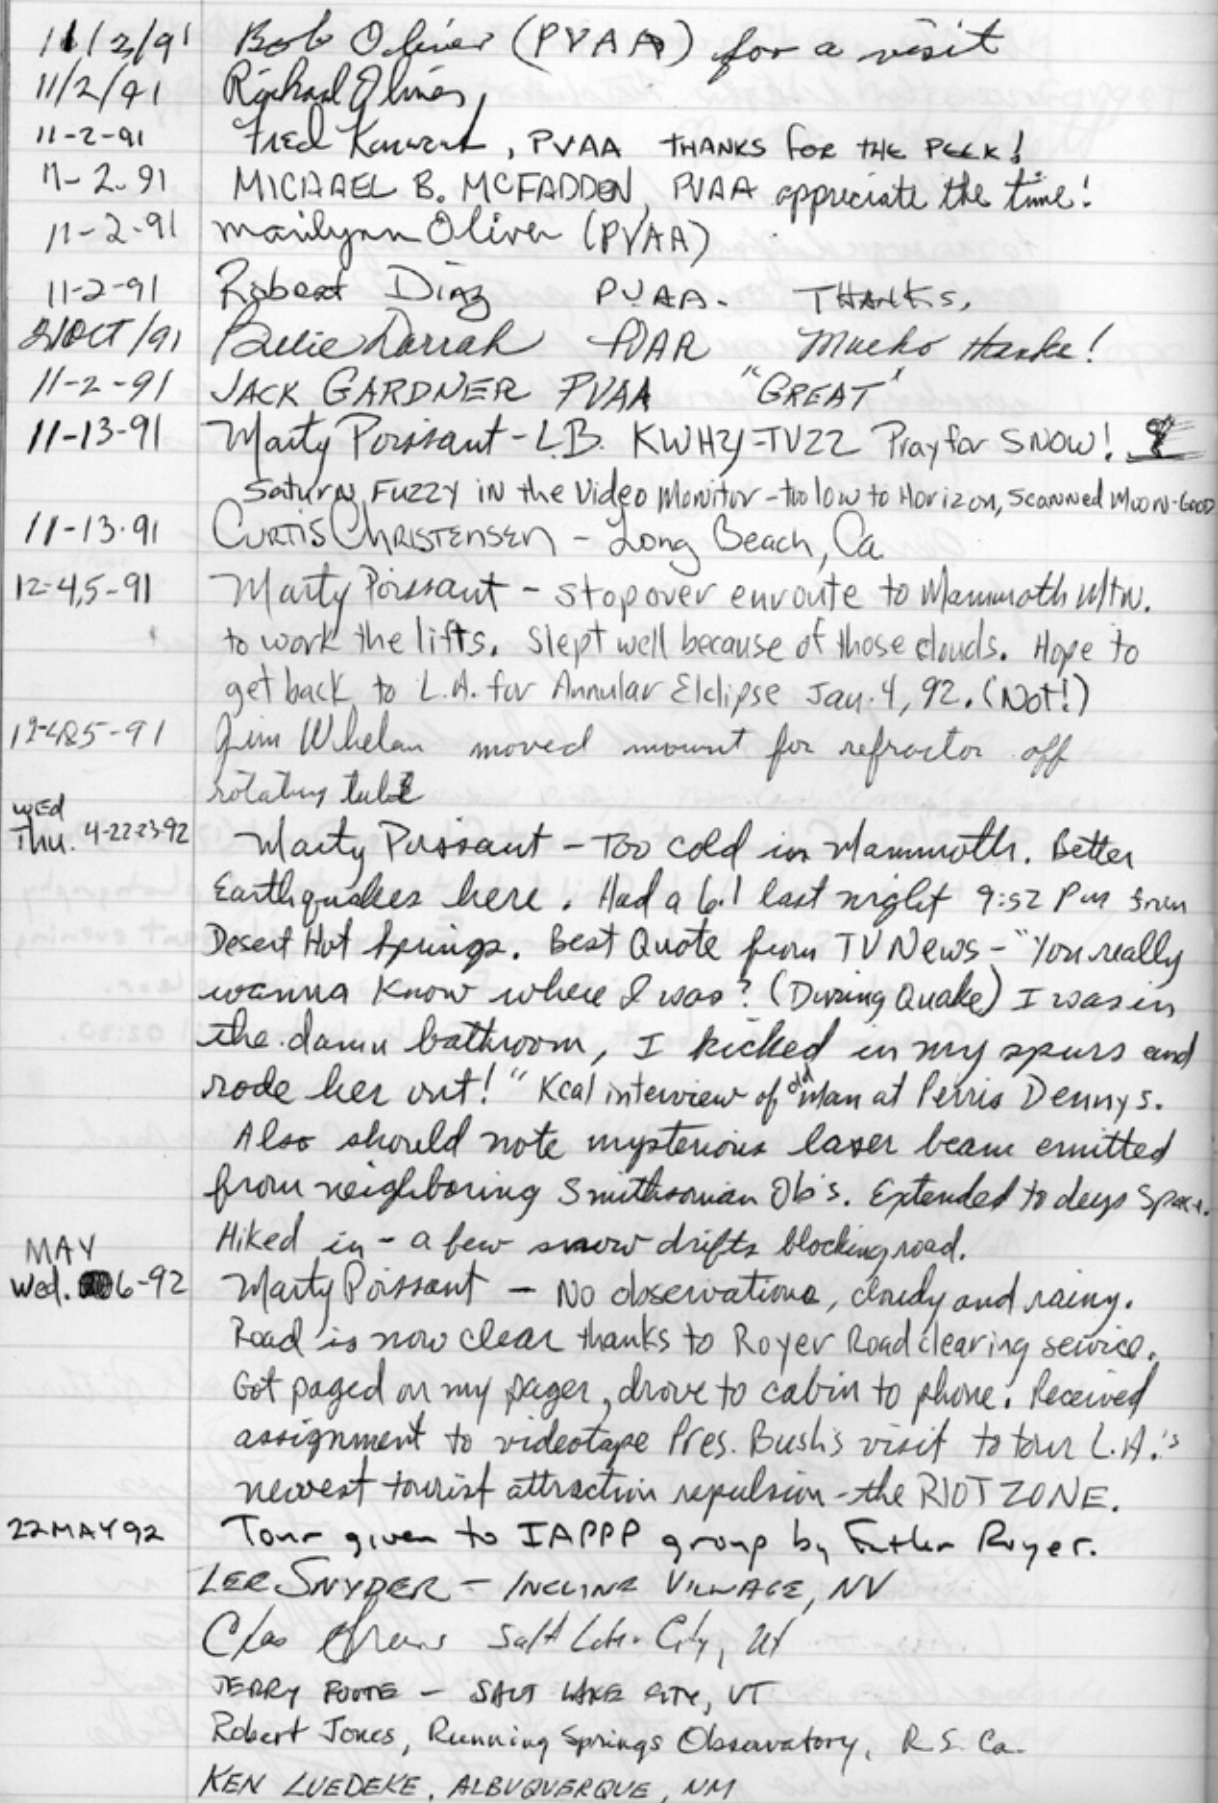 11/2/91 Bob Oliver (PVAA) for a visit
11/2/91 Richard Oliver,
11-2-91 Fred , PVAA THANKS for THE PEEK!
11-2-91 MICHAEL B. MCFADDEN, PVAA appreciate the time!
11-2-91 marilynn Oliver (PVAA)
11-2-91 Robert Diaz PVAA. THANKS,
2/OCT/91 Billie Darrah Mucho thanks!
11-2-91 JACK GARDNER PVAA "GREAT"
11-13-91 Marty Poissant - L.B. KWHY-TV22 Pray for SNOW!
Saturn Fuzzy in the Video Monitor - too low to Horizon, Scanned Moon-Good
11-13-91 CURTIS CHRISTENSEN - Long Beach, Ca
12-4,5-91 Marty Poissant - stopover enroute to Mammoth Mtn.
to work the lifts. Slept well because of those clouds. Hope to
get back to L.A. for Annular Elclipse Jan. 4, 92. (Not!)
12-4&5-91 Jim Whelan moved mount for refractor off
rotating tube
Wed
Thu. 4-22-23-92 Marty Poissant - Too cold in Mammoth. Better
Earthquakes here. Had a 6.1 last night 9:52 Pm from
Desert Hot Springs. Best Quote from TV News - "You really
wanna know where I was? (During Quake) I was in
the damn bathroom, I kicked in my spurs and
rode her out!" Kcal interview of old Man at Perris Dennys.
Also should note mysterious laser beam emitted
from neighboring Smithsonian Ob's. Extended to deep Space.
Hiked in - a few snow drifts blocking road.
MAY
Wed. 6-92 Marty Poissant - No observations, cloudy and rainy.
Road is now clear thanks to Royer Road clearing service.
Got paged on my pager, drove to cabin to phone. Received
assignment to videotape Pres. Bush's visit to tour L.A.'s
newest tourist attraction repulsion - the RIOT ZONE.
22 MAY 92 Tour given to IAPPP group by Father Royer.
LEE SNYDER - INCLINE VILLAGE, NV
Salt Lake City, UT
JERRY FOOTE - SALT LAKE CITY, UT
Robert Jones, Running Springs Observatory, R.S. Ca.
KEN LUEDEKE, ALBUQUERQUE, NM